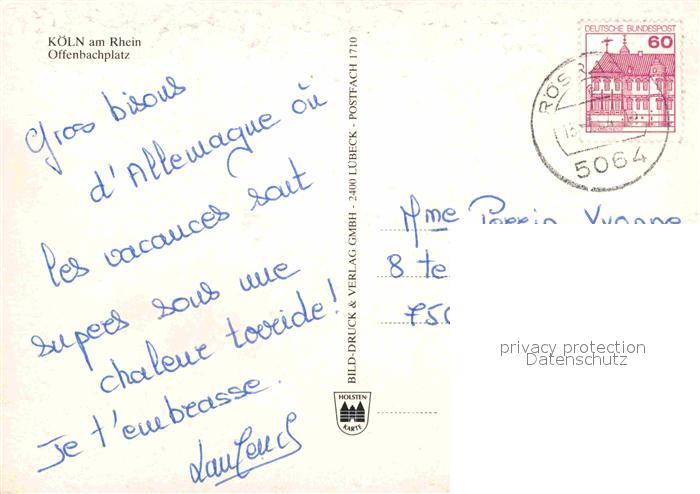 KÖLN am Rhein
Offenbachplatz
Gros bisous
d'Allemagne où
les vacances sont
supers sous une
chaleur torride!
Je t'embrasse.
BILD-DRUCK & VERLAG GMBH - 2400 LÜBECK - POSTFACH 1710
HOLSTEN-
KARTE
DEUTSCHE BUNDESPOST
60
RÖSR
5064
Mme Perrin Yvonne
8 te
750
privacy protection
Datenschutz